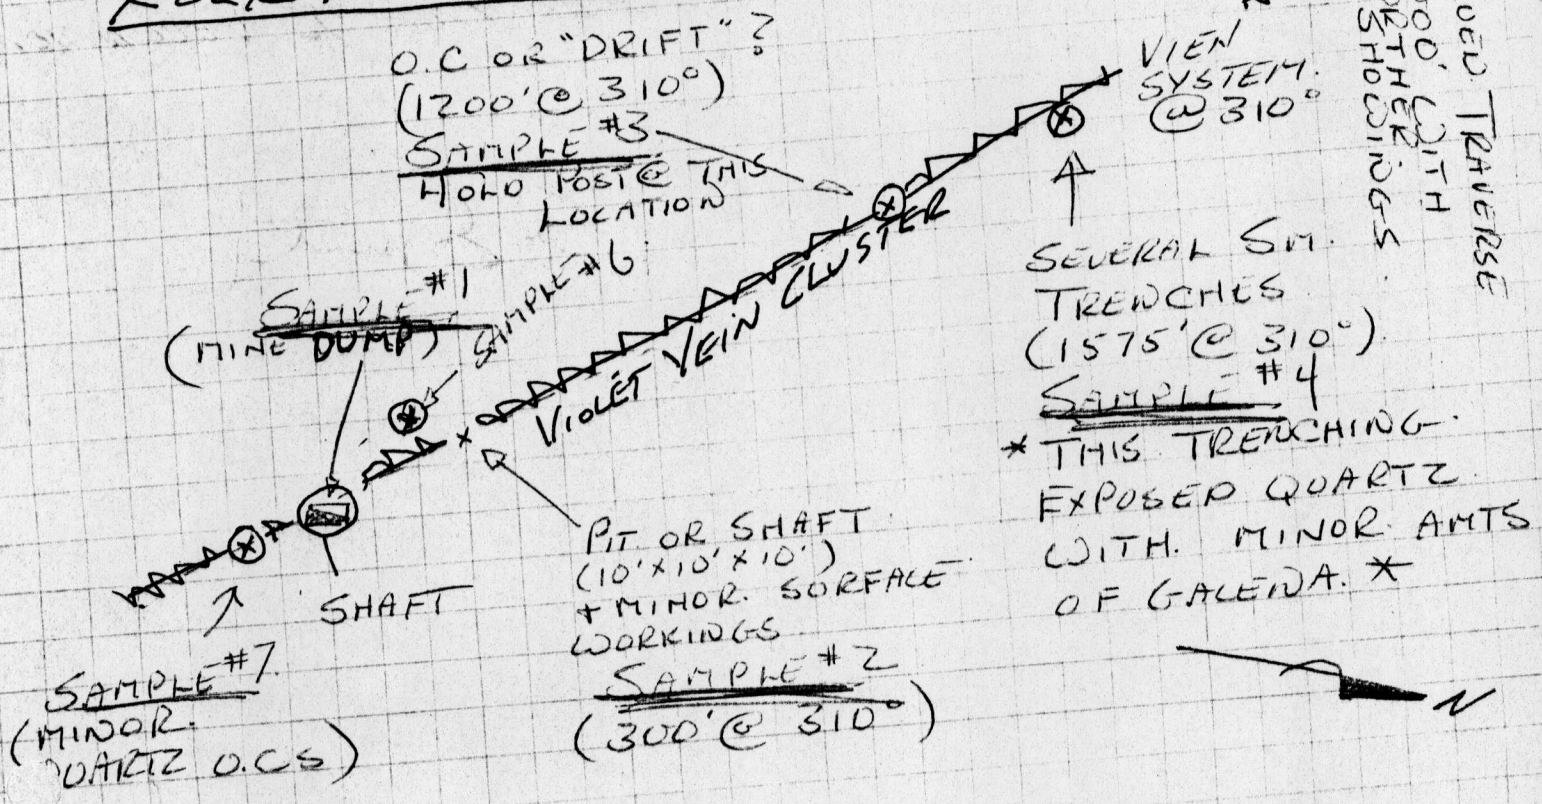 O.C OR "DRIFT"?
(1200' @ 310°)
SAMPLE #3
HOLD POST @ THIS
LOCATION
VIEN
SYSTEM.
@ 310°
TRAVERSE
00' WITH
SHOWINGS
SAMPLE #1
(MINE DUMP)
SAMPLE #6
VIOLET VEIN CLUSTER
SEVERAL SM.
TRENCHES
(1575' @ 310°).
SAMPLE #4
* THIS TRENCHING
EXPOSED QUARTZ
WITH. MINOR. AMTS
OF GALENA. *
SHAFT
PIT. OR SHAFT
(10'x10'x10')
+ MINOR. SURFACE
WORKINGS
SAMPLE #2
(300' @ 310°)
SAMPLE #7.
(MINOR.
UARTZ O.CS)
N